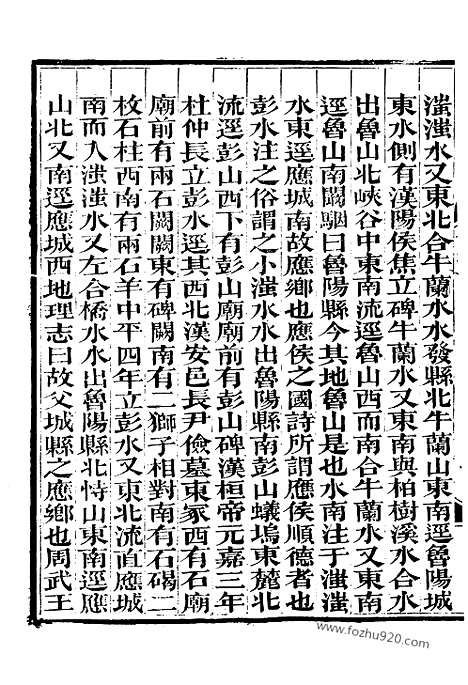 滍滍水又東北合牛蘭水水發縣北牛蘭山東南逕魯陽城
東水側有漢陽侯焦立碑牛蘭水又東南與柏樹溪水合水
出魯山北峽谷中東南流逕魯山西而南合牛蘭水又東南
逕魯山南闞駰曰魯陽縣今其地魯山是也水南注于滍滍
水東逕應城南故應鄉也應侯之國詩所謂應侯順德者也
彭水注之俗謂之小滍水水出魯陽縣南彭山蟻塢東麓北
流逕彭山西下有彭山廟廟前有彭山碑漢桓帝元嘉三年
杜仲長立彭水逕其西北漢安邑長尹儉墓東冢西有石廟
廟前有兩石闕闕東有碑闕南有二獅子相對南有石碣二
枚石柱西南有兩石羊中平四年立彭水又東北流直應城
南而入滍滍水又左合橋水水出魯陽縣北恃山東南逕應
山北又南逕應城西地理志曰故父城縣之應鄉也周武王
www.fozhu920.com